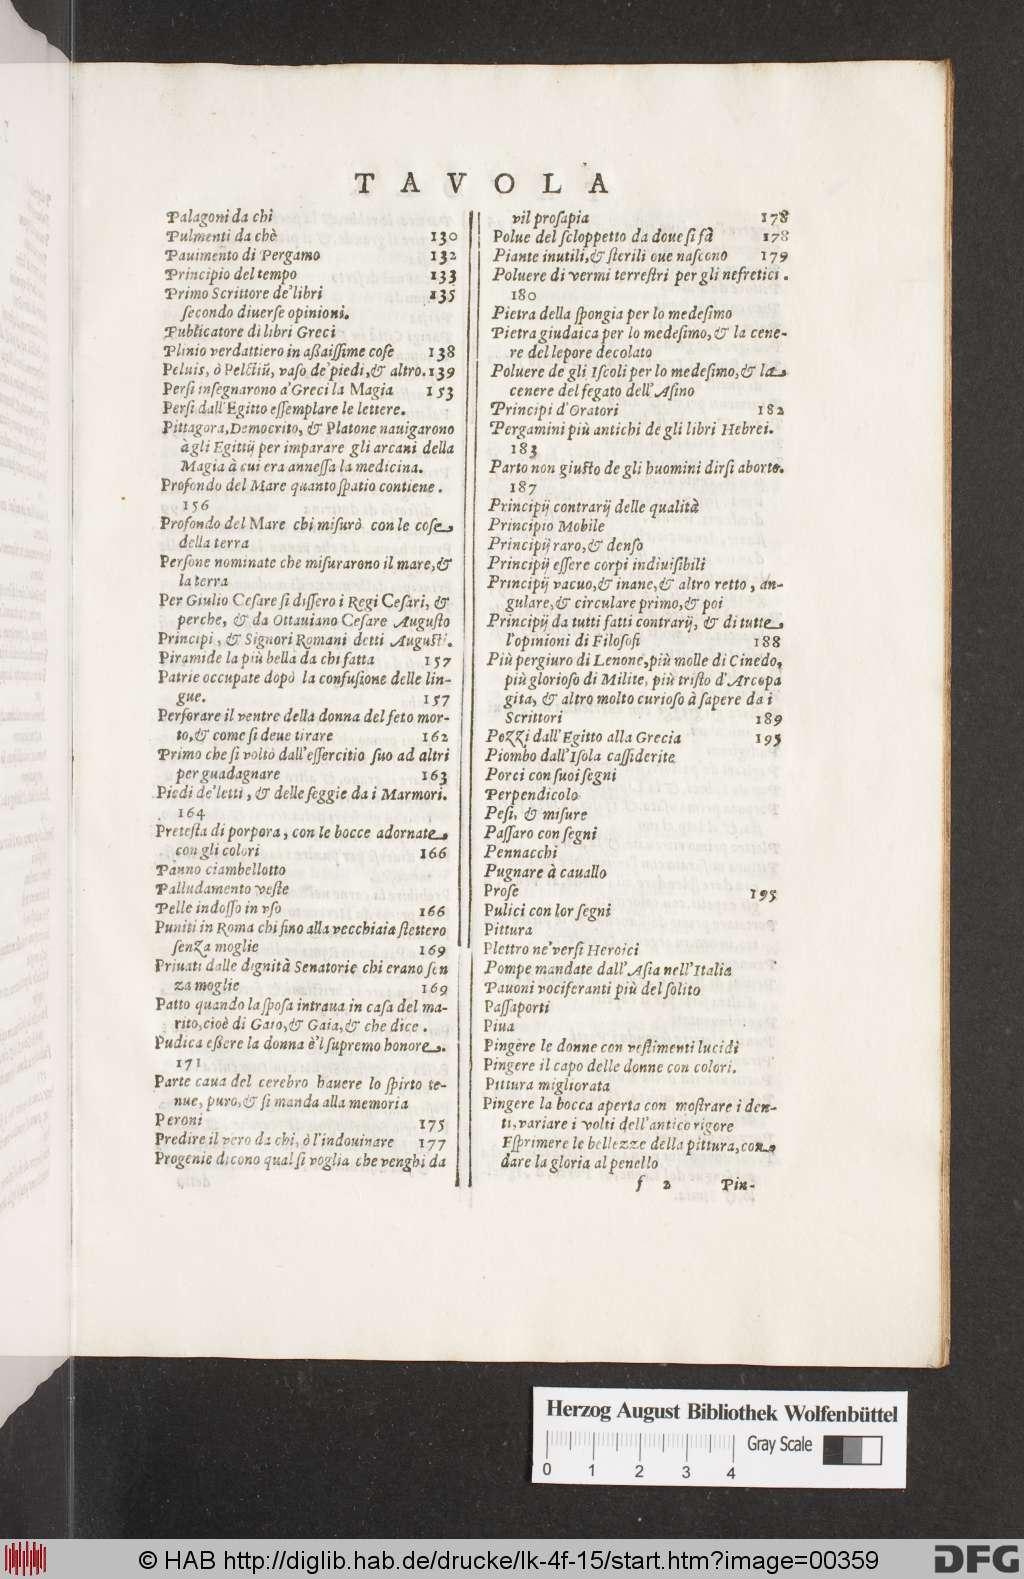 TAVOLA
Palagoni da chi
Pulmenti da chè 130
Pauimento di Pergamo 132
Principio del tempo 133
Primo Scrittore de'libri 135
ſecondo diuerſe opinioni.
Publicatore di libri Greci
Plinio verdattiero in aßaiſſime coſe 138
Peluis, ò Peluiū, vaſo de'piedi,& altro. 139
Perſi inſegnarono a'Greci la Magia 153
Perſi dall'Egitto eſſemplare le lettere.
Pittagora, Democrito, & Platone nauigarono
à gli Egittij per imparare gli arcani della
Magia à cui era anneſſa la medicina.
Profondo del Mare quanto ſpatio contiene.
156
Profondo del Mare chi miſurò con le coſe
della terra
Perſone nominate che miſurarono il mare,&
la terra
Per Giulio Ceſare ſi diſſero i Regi Ceſari, &
perche, & da Ottauiano Ceſare Auguſto
Principi, & Signori Romani detti Auguſti.
Piramide la più bella da chi fatta 157
Patrie occupate dopò la confuſione delle lin-
gue. 157
Perforare il ventre della donna del feto mor-
to,& come ſi deue tirare 162
Primo che ſi voltò dall'eſſercitio ſuo ad altri
per guadagnare 163
Piedi de'letti, & delle ſeggie da i Marmori.
164
Preteſta di porpora, con le bocce adornate
con gli colori 166
Panno ciambellotto
Palludamento veſte
Pelle indoſſo in vſo 166
Puniti in Roma chi ſino alla vecchiaia ſtettero
ſenza moglie 169
Priuati dalle dignità Senatorie chi erano ſen
za moglie 169
Patto quando la ſpoſa intraua in caſa del ma-
rito, cioè di Gaio,& Gaia,& che dice.
Pudica eßere la donna è'l ſupremo honore.
171
Parte caua del cerebro hauere lo ſpirto te-
nue, puro,& ſi manda alla memoria
Peroni 175
Predire il vero da chi, ò l'indouinare 177
Progenie dicono qual ſi voglia che venghi da
vil proſapia 178
Polue del ſcloppetto da doue ſi fà 178
Piante inutili,& ſterili oue naſcono 179
Poluere di vermi terreſtri per gli nefretici.
180
Pietra della ſpongia per lo medeſimo
Pietra giudaica per lo medeſimo,& la cene-
re del lepore decolato
Poluere de gli Iſcoli per lo medeſimo,& la
cenere del fegato dell'Aſino
Principi d'Oratori 182
Pergamini più antichi de gli libri Hebrei.
183
Parto non giuſto de gli huomini dirſi aborto.
187
Principij contrarij delle qualità
Principio Mobile
Principij raro,& denſo
Principij eſſere corpi indiuiſibili
Principij vacuo,& inane,& altro retto, an-
gulare,& circulare primo,& poi
Principij da tutti fatti contrarij, & di tutte
l'opinioni di Filoſofi 188
Più pergiuro di Lenone, più molle di Cinedo,
più glorioſo di Milite, più triſto d'Areopa
gita, & altro molto curioſo à ſapere da i
Scrittori 189
Pozzi dall'Egitto alla Grecia 195
Piombo dall'Iſola caſſiderite
Porci con ſuoi ſegni
Perpendicolo
Peſi, & miſure
Paſſaro con ſegni
Pennacchi
Pugnare à cauallo
Proſe 195
Pulici con lor ſegni
Pittura
Plettro ne'verſi Heroici
Pompe mandate dall'Aſia nell'Italia
Pauoni vociferanti più del ſolito
Paſſaporti
Piua
Pingere le donne con veſtimenti lucidi
Pingere il capo delle donne con colori.
Pittura migliorata
Pingere la bocca aperta con moſtrare i den-
ti, variare i volti dell'antico rigore
Eſprimere le bellezze della pittura, con
dare la gloria al penello
f 2 Pin-
Herzog August Bibliothek Wolfenbüttel
Gray Scale
0 1 2 3 4
© HAB http://diglib.hab.de/drucke/lk-4f-15/start.htm?image=00359
DFG